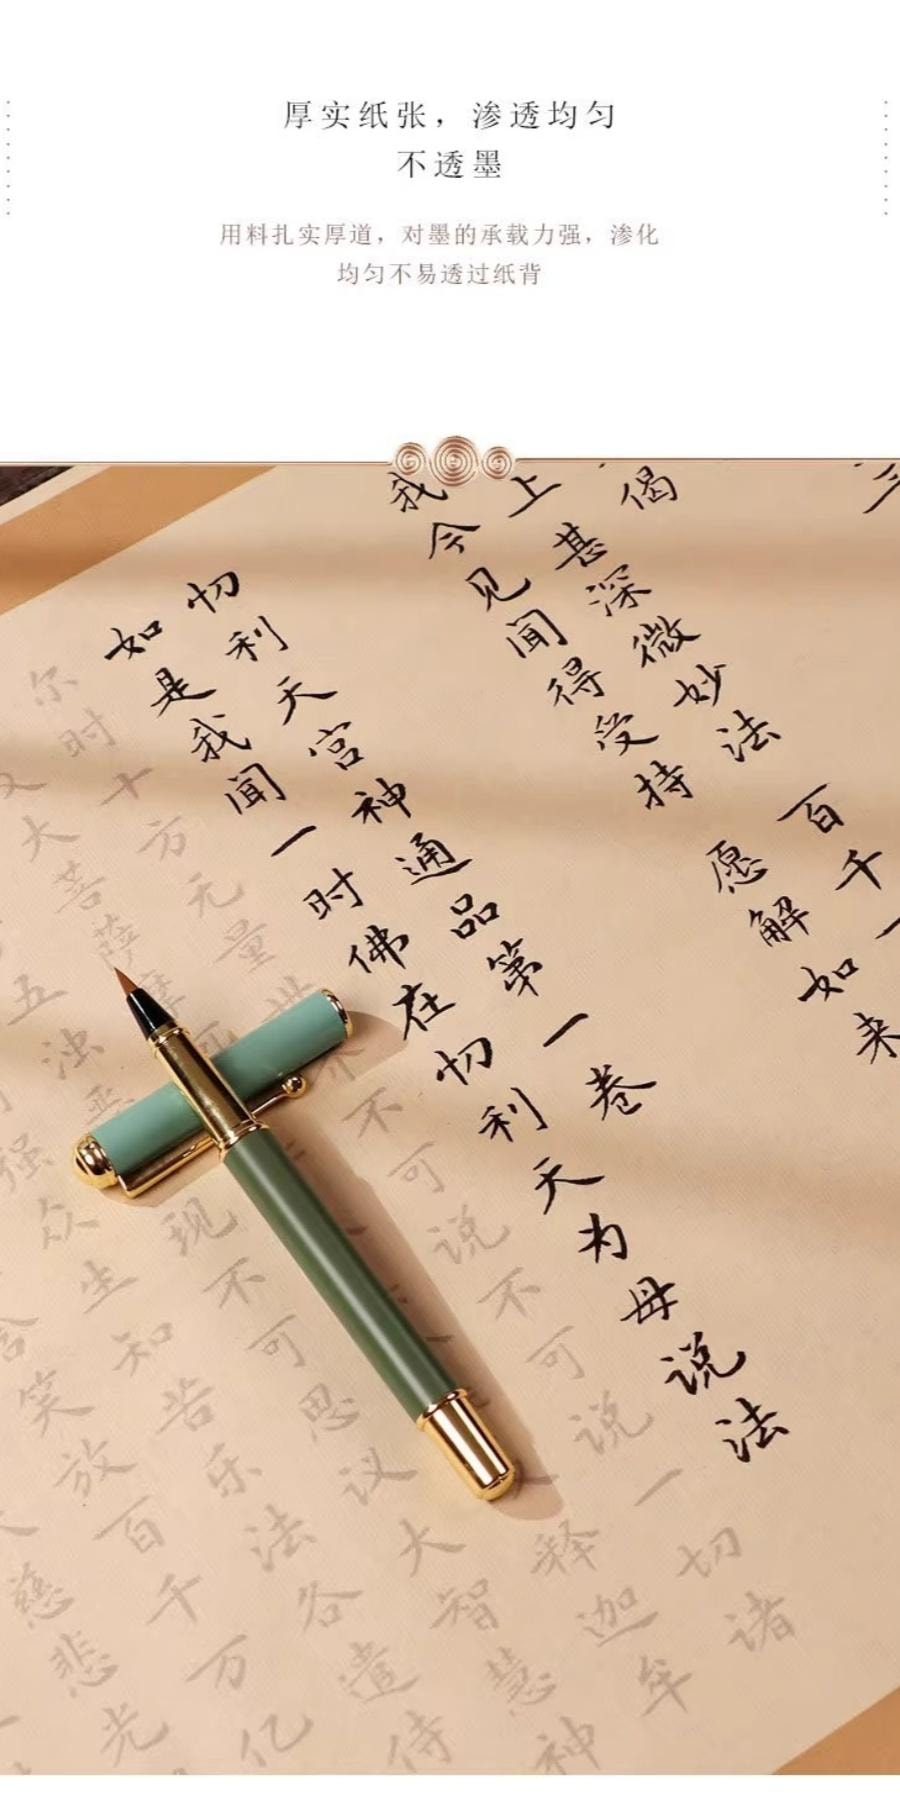 厚实纸张，渗透均匀
不透墨
用料扎实厚道，对墨的承载力强，渗化
均匀不易透过纸背
三
百千
偈
上甚深微妙法
一
我今见闻得受持
愿解如来
忉利天宫神通品第一卷
如是我闻一时佛在忉利天为母说法
一切诸
尔时十方无量世
不可说不可说
释迦牟
大智慧神
不可思议
法各遣侍
现
知苦乐
亿
大菩萨摩
五浊恶
强众生
百千万
笑放
光
慈悲